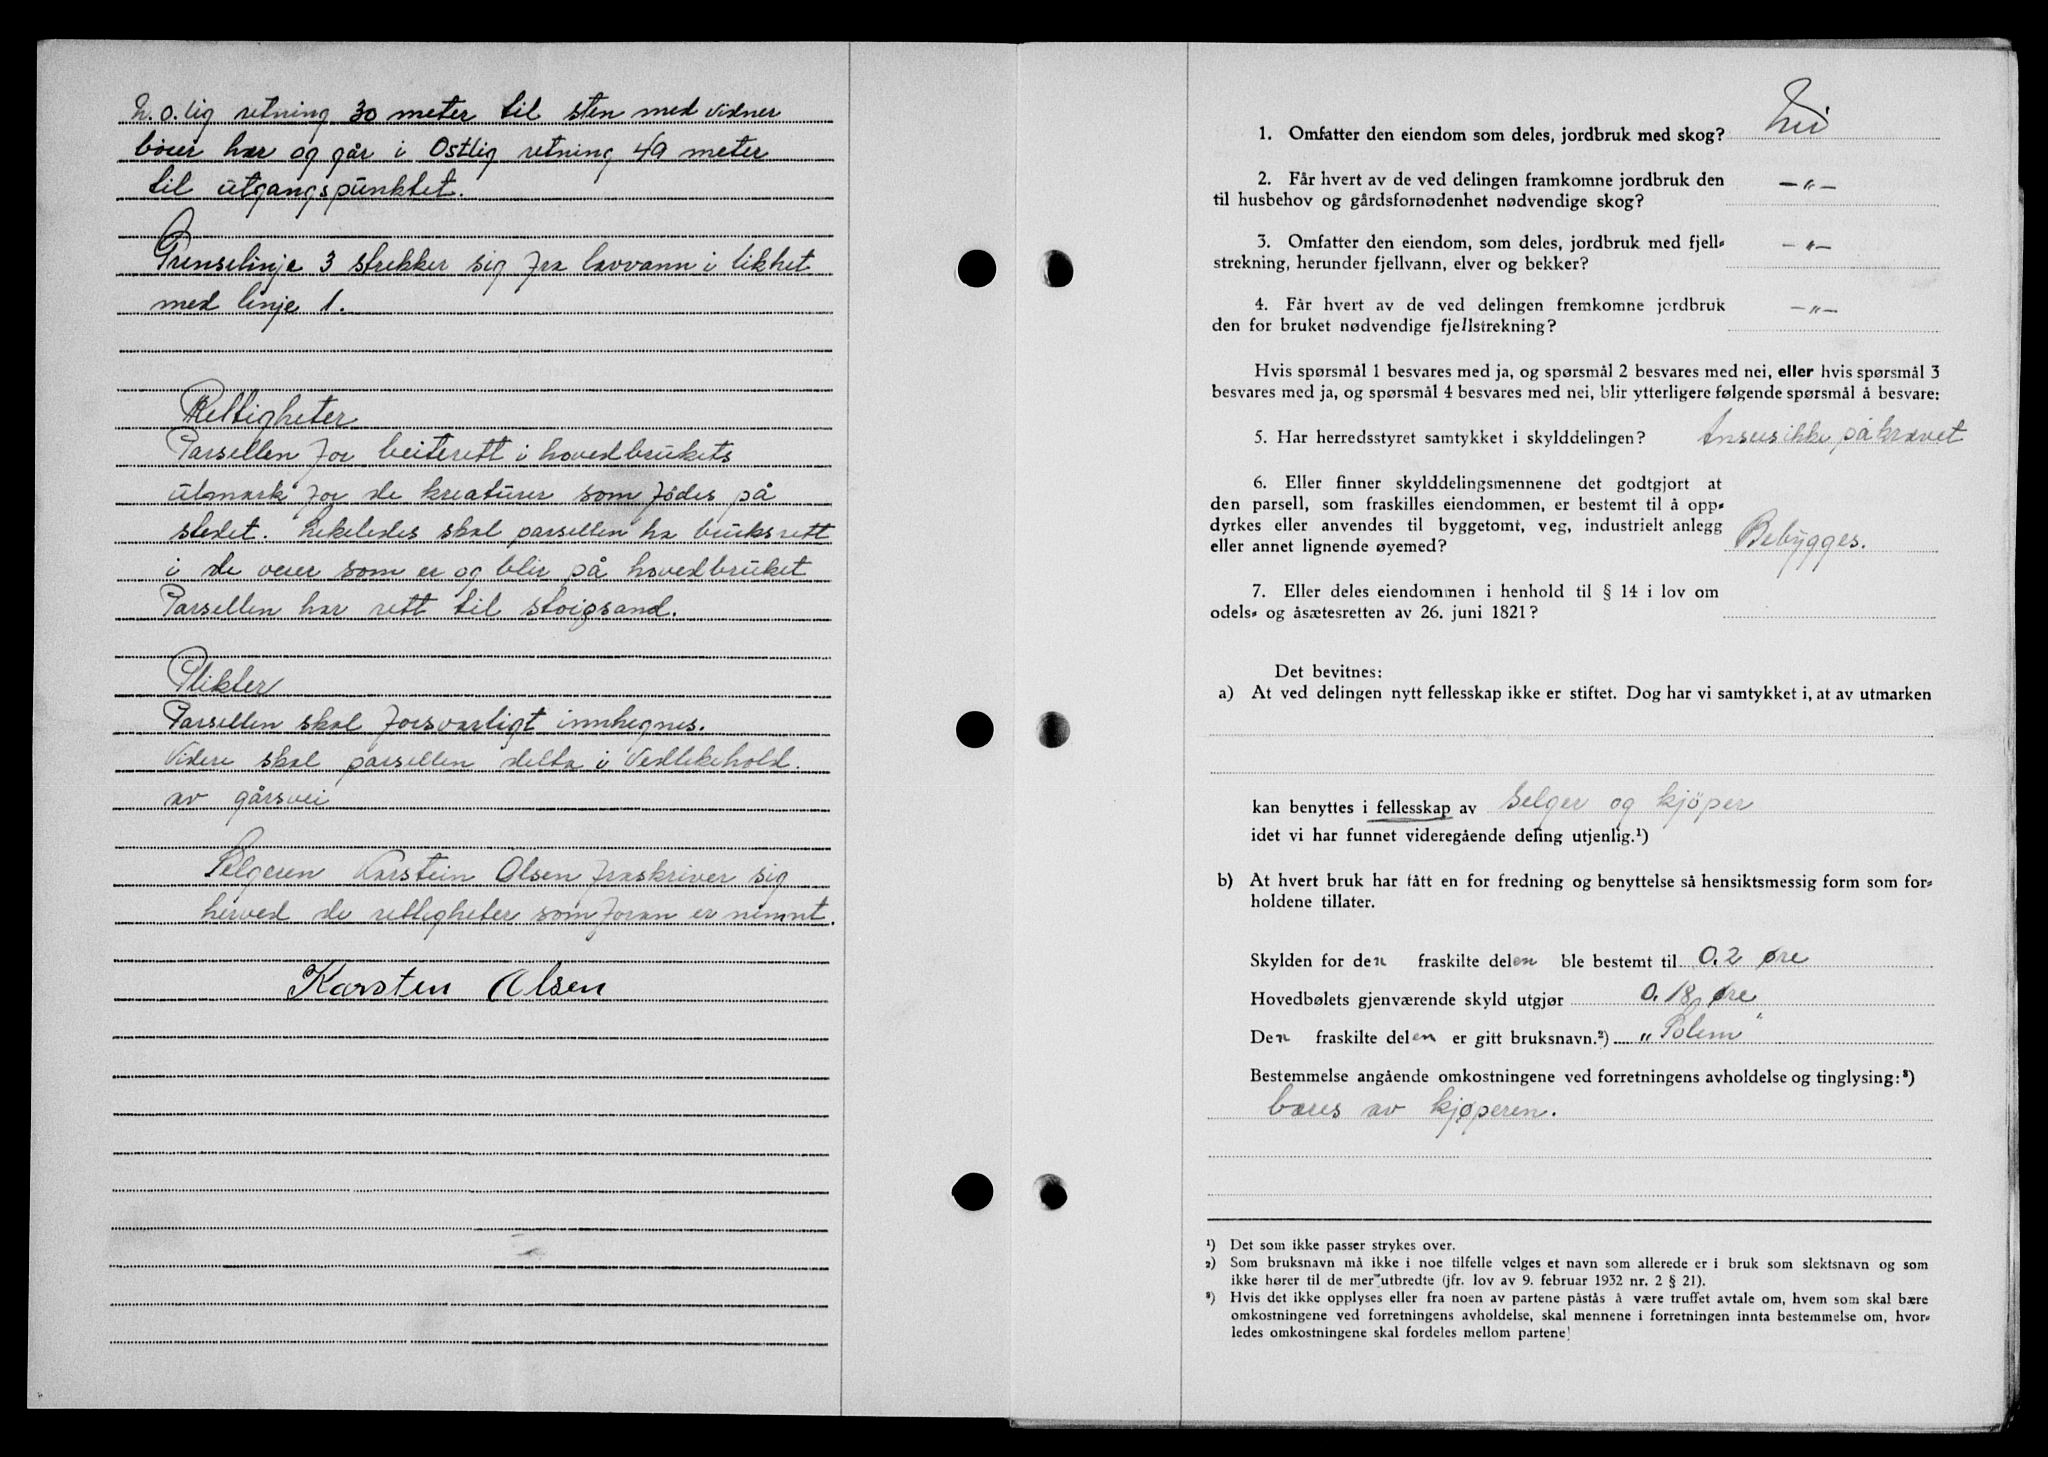 N.O.lig retning 30 meter til sten med vidner
bøier her og går i Østlig retning 49 meter
til utgangspunktet.
Grenselinje 3 strekker sig fra lavvann i likhet
med linje 1.
Rettigheter
Parsellen for beiterett i hovedbrukets
utmark for de kreaturer som födes på
stedet. Likeledes skal parsellen ha bruksrett
i de veier som er og blir på hovedbruket
Parsellen har rett til støigsand.
Plikter
Parsellen skal forsvarligt innhegnes.
Videre skal parsellen delta i Vedlikehold.
av gårsvei
Selgeren Karstein Olsen fraskriver sig
herved de rettigheter som foran er nemnt.
Karsten Olsen
1. Omfatter den eiendom som deles, jordbruk med skog? Nei
2. Får hvert av de ved delingen framkomne jordbruk den
til husbehov og gårdsfornødenhet nødvendige skog? —"—
3. Omfatter den eiendom, som deles, jordbruk med fjell-
strekning, herunder fjellvann, elver og bekker? —"—
4. Får hvert av de ved delingen fremkomne jordbruk
den for bruket nødvendige fjellstrekning? —"—
Hvis spørsmål 1 besvares med ja, og spørsmål 2 besvares med nei, eller hvis spørsmål 3
besvares med ja, og spørsmål 4 besvares med nei, blir ytterligere følgende spørsmål å besvare:
5. Har herredsstyret samtykket i skylddelingen? Ansees ikke påkrævet
6. Eller finner skylddelingsmennene det godtgjort at
den parsell, som fraskilles eiendommen, er bestemt til å opp-
dyrkes eller anvendes til byggetomt, veg, industrielt anlegg
eller annet lignende øyemed? Bebygges.
7. Eller deles eiendommen i henhold til § 14 i lov om
odels- og åsætesretten av 26. juni 1821?
Det bevitnes:
a) At ved delingen nytt fellesskap ikke er stiftet. Dog har vi samtykket i, at av utmarken
kan benyttes i fellesskap av Selger og kjöper
idet vi har funnet videregående deling utjenlig.¹)
b) At hvert bruk har fått en for fredning og benyttelse så hensiktsmessig form som for-
holdene tillater.
Skylden for den fraskilte delen ble bestemt til 0.2 øre
Hovedbølets gjenværende skyld utgjør 0.18 Øre
Den fraskilte delen er gitt bruksnavn.²) „Solem"
Bestemmelse angående omkostningene ved forretningens avholdelse og tinglysing:³)
bæres av kjøperen.
¹) Det som ikke passer strykes over.
²) Som bruksnavn må ikke i noe tilfelle velges et navn som allerede er i bruk som slektsnavn og som
ikke hører til de mer utbredte (jfr. lov av 9. februar 1932 nr. 2 § 21).
³) Hvis det ikke opplyses eller fra noen av partene påstås å være truffet avtale om, hvem som skal bære
omkostningene ved forretningens avholdelse, skal mennene i forretningen innta bestemmelse om, hvor-
ledes omkostningene skal fordeles mellom partene!